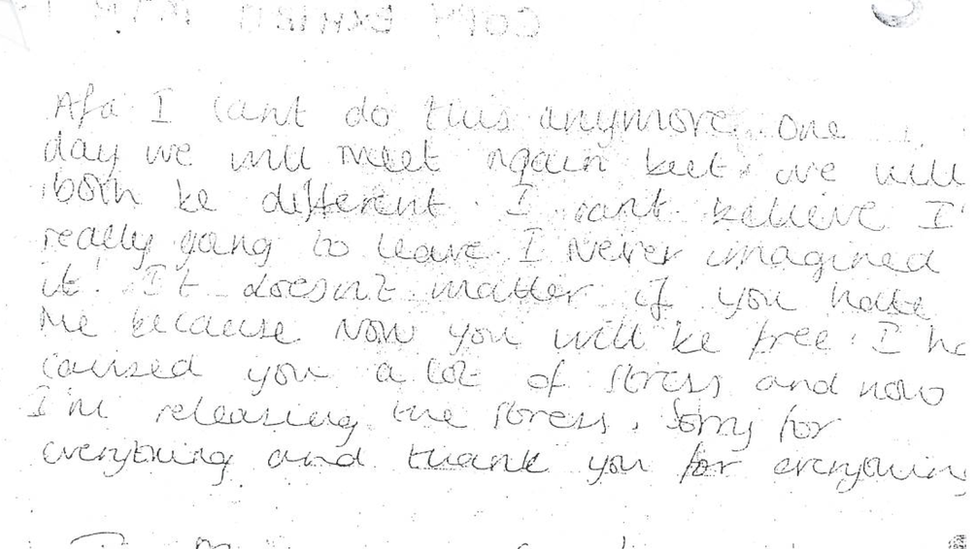 Afa I cant do this anymore. One
day we will meet again but we will
both be different. I cant believe I'
really going to leave I never imagined
it! It doesn't matter if you hate
me because now you will be free. I ha
caused you a lot of stress and now
I'm releasing the stress. Sorry for
everything and thank you for everything